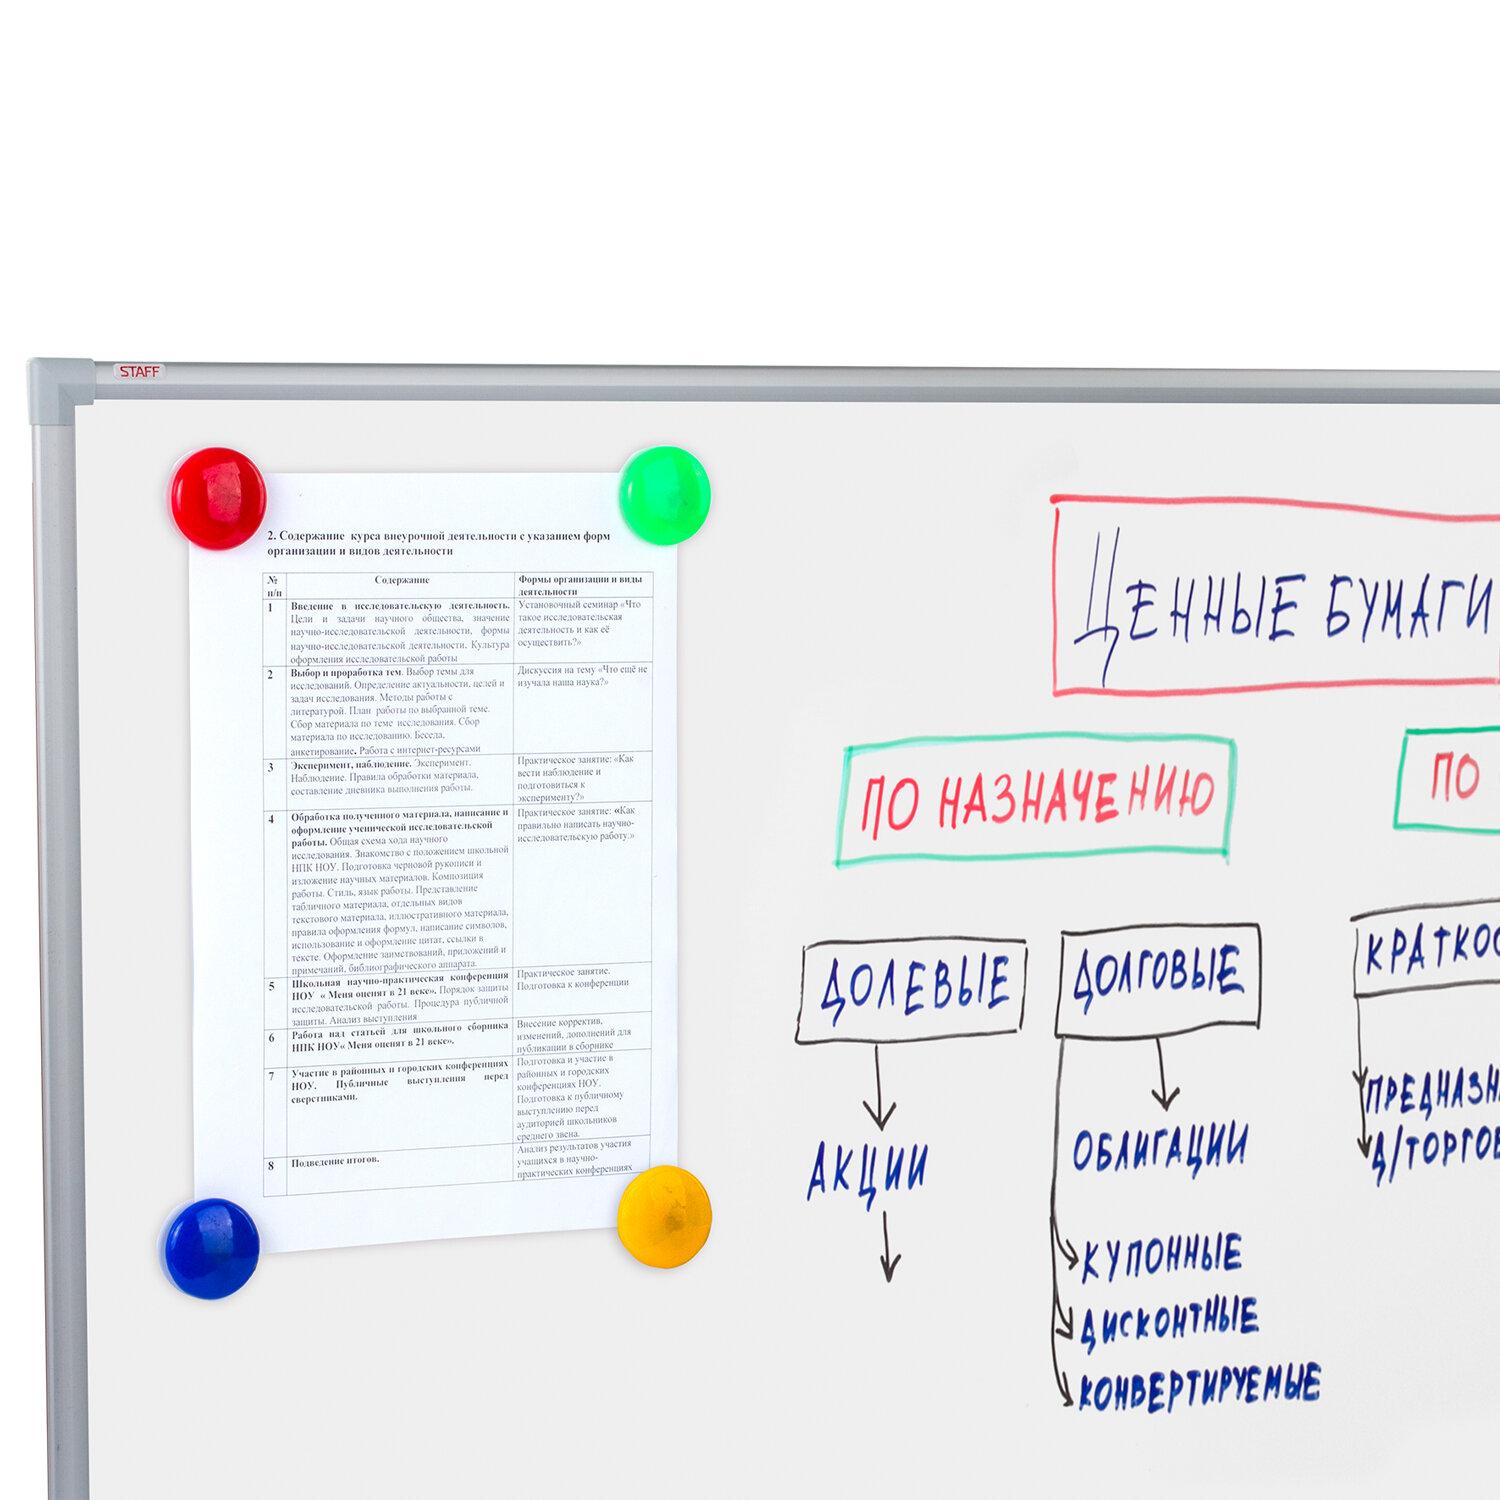 STAFF
2. Содержание курса внеурочной деятельности с указанием форм
организации и видов деятельности
№ п/п
Содержание
Формы организации и виды
деятельности
1
Введение в исследовательскую деятельность.
Цели и задачи научного общества, значение
научно-исследовательской деятельности, формы
научно-исследовательской деятельности. Культура
оформления исследовательской работы
Установочный семинар «Что
такое исследовательская
деятельность и как её
осуществить?»
2
Выбор и проработка тем. Выбор темы для
исследований. Определение актуальности, целей и
задач исследования. Методы работы с
литературой. План работы по выбранной теме.
Сбор материала по теме исследования. Сбор
материала по исследованию. Беседа,
анкетирование. Работа с интернет-ресурсами
Дискуссия на тему «Что ещё не
изучала наша наука?»
3
Эксперимент, наблюдение. Эксперимент.
Наблюдение. Правила обработки материала,
составление дневника выполнения работы.
Практическое занятие: «Как
вести наблюдение и
подготовиться к
эксперименту?»
4
Обработка полученного материала, написание и
оформление ученической исследовательской
работы. Общая схема хода научного
исследования. Знакомство с положением школьной
НПК НОУ. Подготовка черновой рукописи и
изложение научных материалов. Композиция
работы. Стиль, язык работы. Представление
табличного материала, отдельных видов
текстового материала, иллюстративного материала,
правила оформления формул, написание символов,
использование и оформление цитат, ссылки в
тексте. Оформление заимствований, приложений и
примечаний, библиографического аппарата.
Практическое занятие: «Как
правильно написать научно-
исследовательскую работу.»
5
Школьная научно-практическая конференция
НОУ « Меня оценят в 21 веке». Порядок защиты
исследовательской работы. Процедура публичной
защиты. Анализ выступления
Практическое занятие.
Подготовка к конференции
6
Работа над статьей для школьного сборника
НПК НОУ« Меня оценят в 21 веке».
Внесение корректив,
изменений, дополнений для
публикации в сборнике
7
Участие в районных и городских конференциях
НОУ. Публичные выступления перед
сверстниками.
Подготовка и участие в
районных и городских
конференциях НОУ.
Подготовка к публичному
выступлению перед
аудиторией школьников
среднего звена.
8
Подведение итогов.
Анализ результатов участия
учащихся в научно-
практических конференциях
ЦЕННЫЕ БУМАГИ
ПО НАЗНАЧЕНИЮ
ПО
ДОЛЕВЫЕ
ДОЛГОВЫЕ
КРАТКОС
АКЦИИ
ОБЛИГАЦИИ
ПРЕДНАЗН
Д/ТОРГОВ
КУПОННЫЕ
ДИСКОНТНЫЕ
КОНВЕРТИРУЕМЫЕ